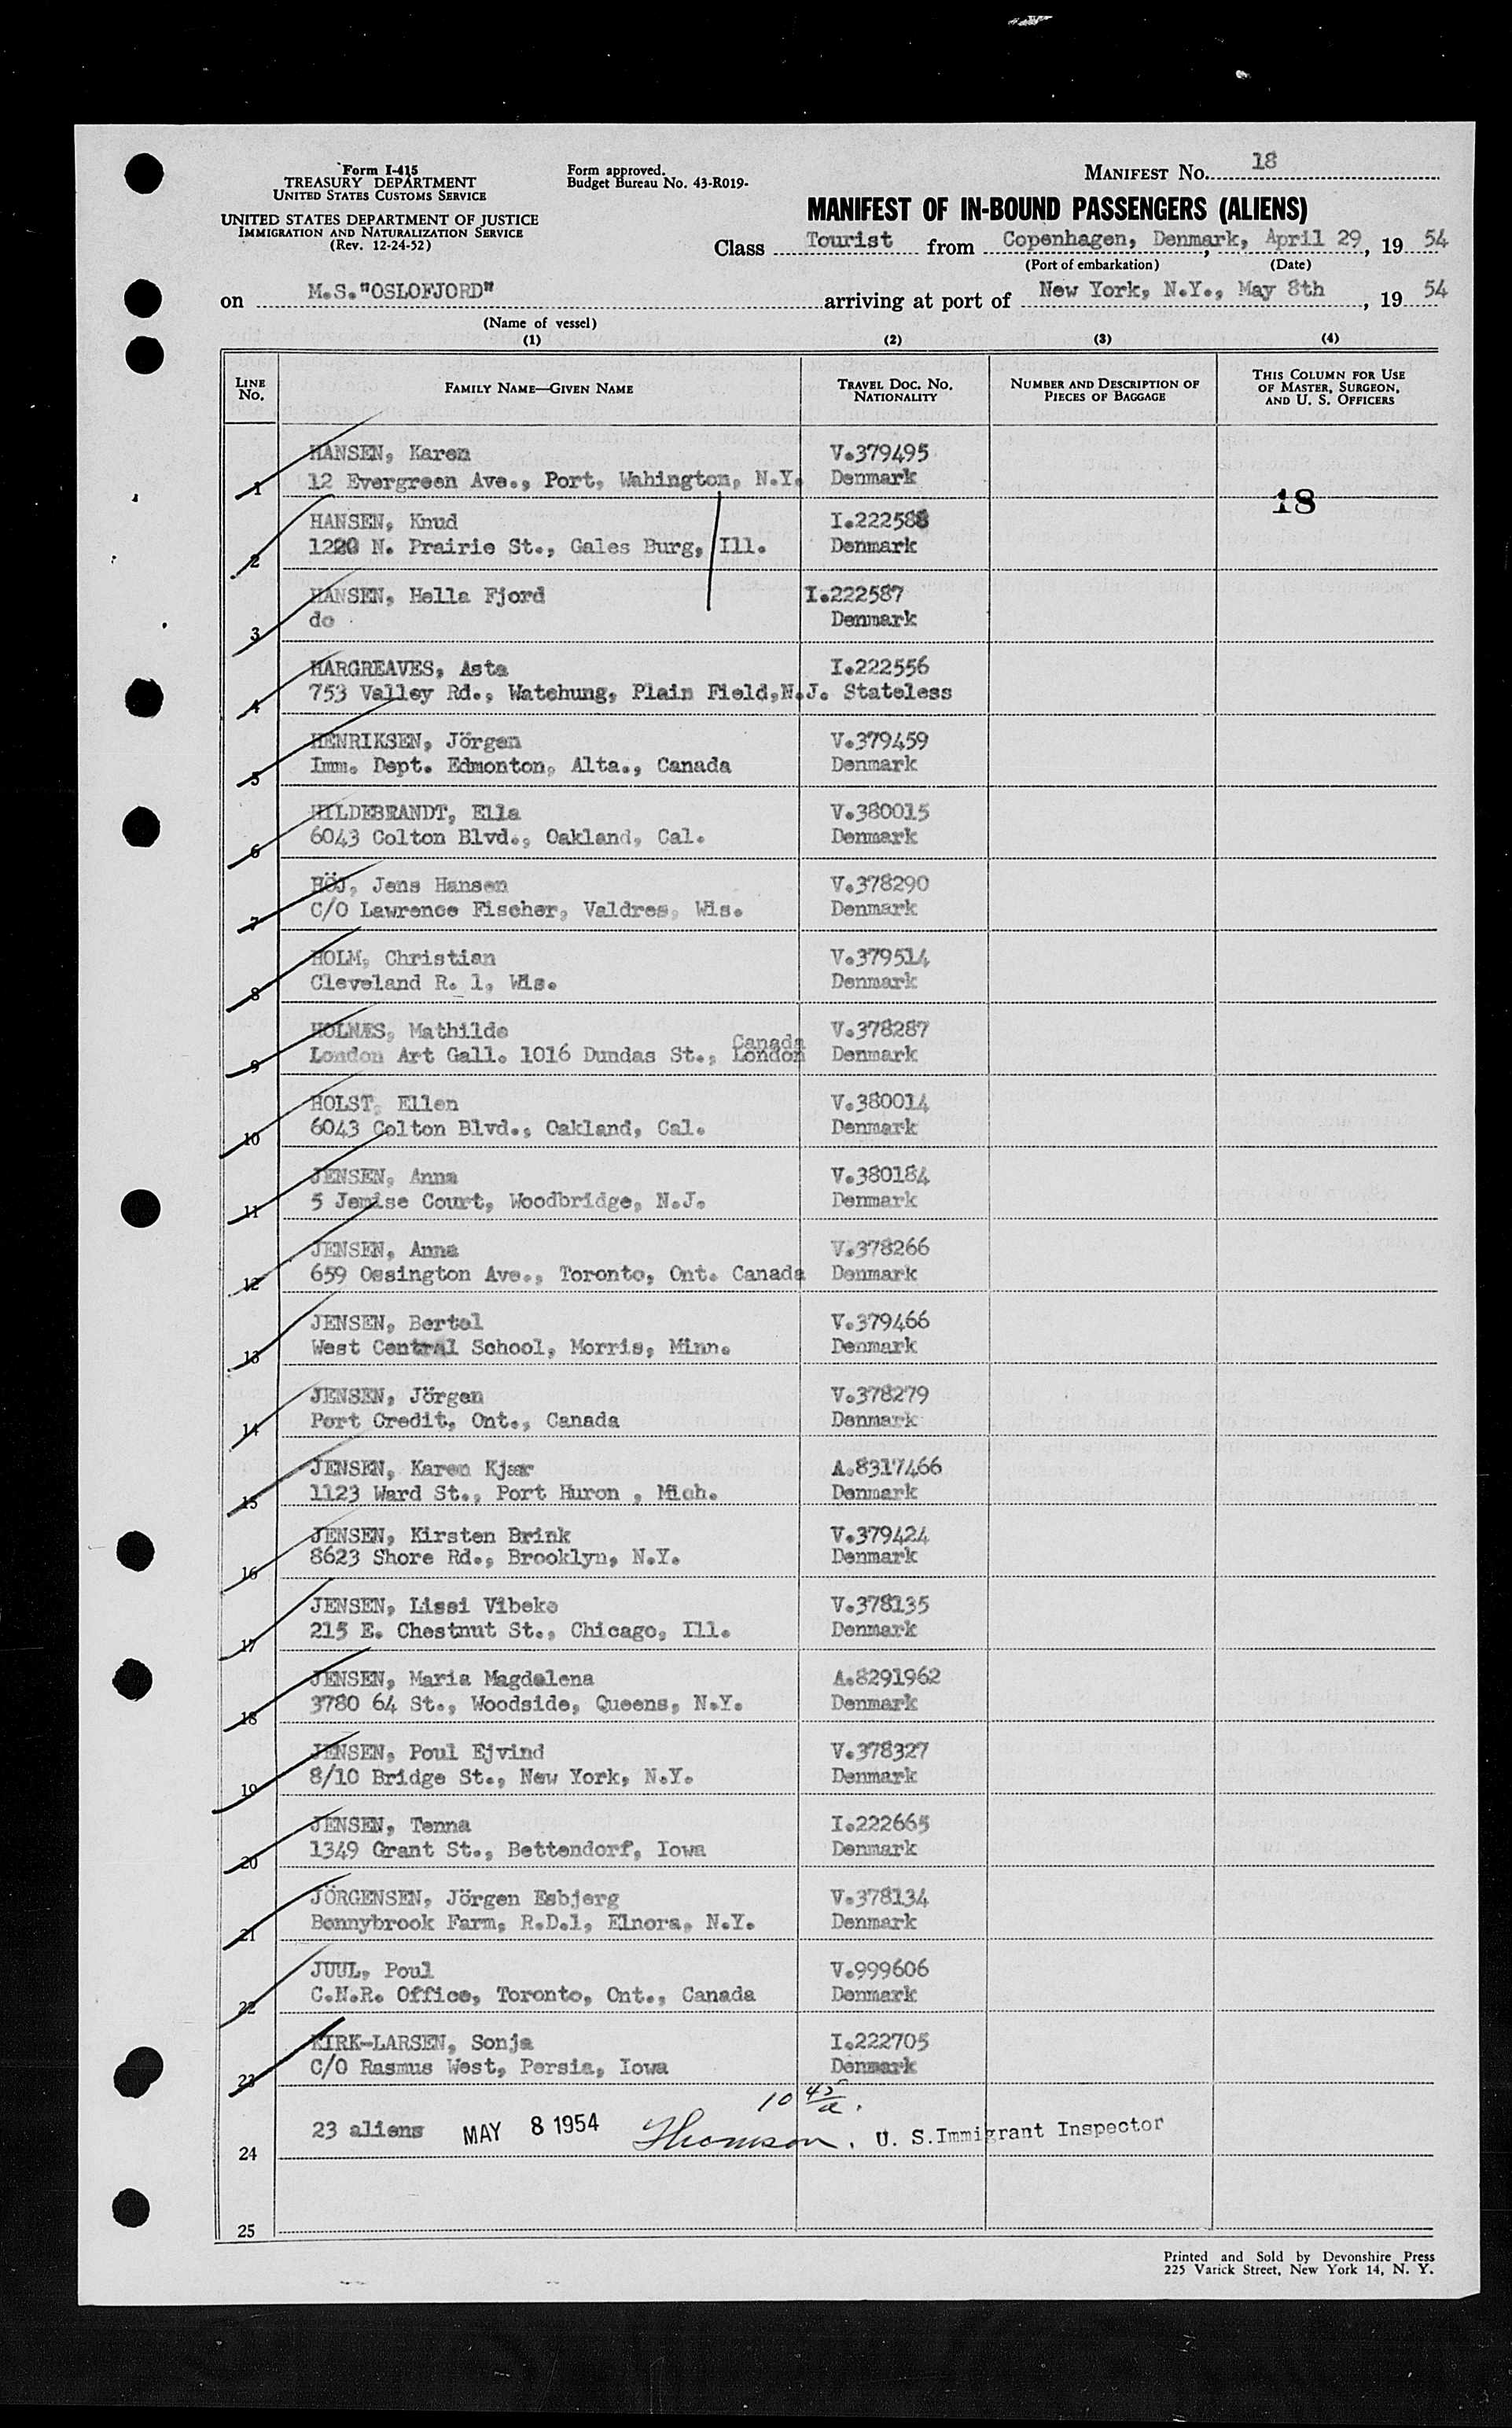 Form I-415
TREASURY DEPARTMENT
UNITED STATES CUSTOMS SERVICE
UNITED STATES DEPARTMENT OF JUSTICE
IMMIGRATION AND NATURALIZATION SERVICE
(Rev. 12-24-52)
Form approved.
Budget Bureau No. 43-R019-
MANIFEST No. 18
MANIFEST OF IN-BOUND PASSENGERS (ALIENS)
Class Tourist from Copenhagen, Denmark, April 29, 19 54
(Port of embarkation) (Date)
on M.S."OSLOFJORD" arriving at port of New York, N.Y., May 8th, 19 54
(Name of vessel)
(1) (2) (3) (4)
LINE No. FAMILY NAME—GIVEN NAME TRAVEL DOC. NO. NATIONALITY NUMBER AND DESCRIPTION OF PIECES OF BAGGAGE THIS COLUMN FOR USE OF MASTER, SURGEON, AND U. S. OFFICERS
HANSEN, Karen V.379495
1 12 Evergreen Ave., Port, Wahington, N.Y. Denmark
18
HANSEN, Knud I.222588
2 1220 N. Prairie St., Gales Burg, Ill. Denmark
HANSEN, Hella Fjord I.222587
3 do Denmark
HARGREAVES, Asta I.222556
4 753 Valley Rd., Watchung, Plain Field,N.J. Stateless
HENRIKSEN, Jörgen V.379459
5 Imm. Dept. Edmonton, Alta., Canada Denmark
HILDEBRANDT, Ella V.380015
6 6043 Colton Blvd., Oakland, Cal. Denmark
HÖJ, Jens Hansen V.378290
7 C/O Lawrence Fischer, Valdres, Wis. Denmark
HOLM, Christian V.379514
8 Cleveland R. 1, Wis. Denmark
HOLNÆS, Mathilde V.378287
9 London Art Gall. 1016 Dundas St., London Canada Denmark
HOLST, Ellen V.380014
10 6043 Colton Blvd., Oakland, Cal. Denmark
JENSEN, Anna V.380184
11 5 Jemise Court, Woodbridge, N.J. Denmark
JENSEN, Anna V.378266
12 659 Ossington Ave., Toronto, Ont. Canada Denmark
JENSEN, Bertel V.379466
13 West Central School, Morris, Minn. Denmark
JENSEN, Jörgen V.378279
14 Port Credit, Ont., Canada Denmark
JENSEN, Karen Kjær A.8317466
15 1123 Ward St., Port Huron , Mich. Denmark
JENSEN, Kirsten Brink V.379424
16 8623 Shore Rd., Brooklyn, N.Y. Denmark
JENSEN, Lissi Vibeke V.378135
17 215 E. Chestnut St., Chicago, Ill. Denmark
JENSEN, Maria Magdalena A.8291962
18 3780 64 St., Woodside, Queens, N.Y. Denmark
JENSEN, Poul Ejvind V.378327
19 8/10 Bridge St., New York, N.Y. Denmark
JENSEN, Tenna I.222665
20 1349 Grant St., Bettendorf, Iowa Denmark
JÖRGENSEN, Jörgen Esbjerg V.378134
21 Bonnybrook Farm, R.D.1, Elnora, N.Y. Denmark
JUUL, Poul V.999606
22 C.N.R. Office, Toronto, Ont., Canada Denmark
KIRK-LARSEN, Sonja I.222705
23 C/O Rasmus West, Persia, Iowa Denmark
10 45/a.
24 23 aliens MAY 8 1954 Thomson. U. S. Immigrant Inspector
25
Printed and Sold by Devonshire Press
225 Varick Street, New York 14, N. Y.